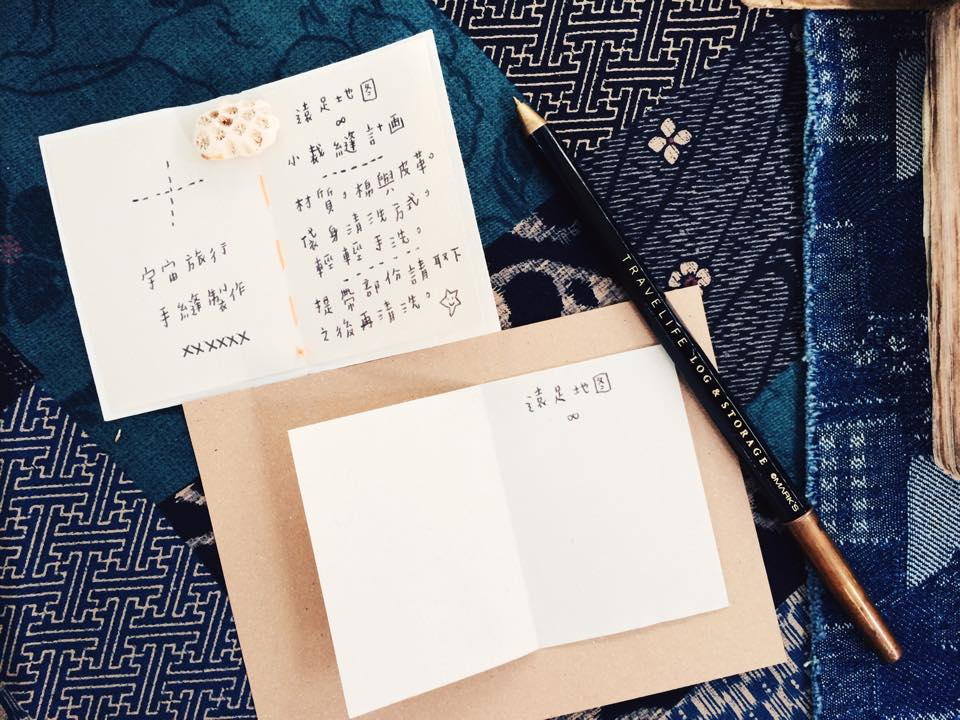 宇宙旅行
手縫製作
xxxxxx
遠足地図
∞
小裁縫計画
材質，棉與皮革。
袋身清洗方式，
輕輕手洗。
提帶部份請取下
之後再清洗。
遠足地図
∞
TRAVELIFE LOG & STORAGE MARK'S